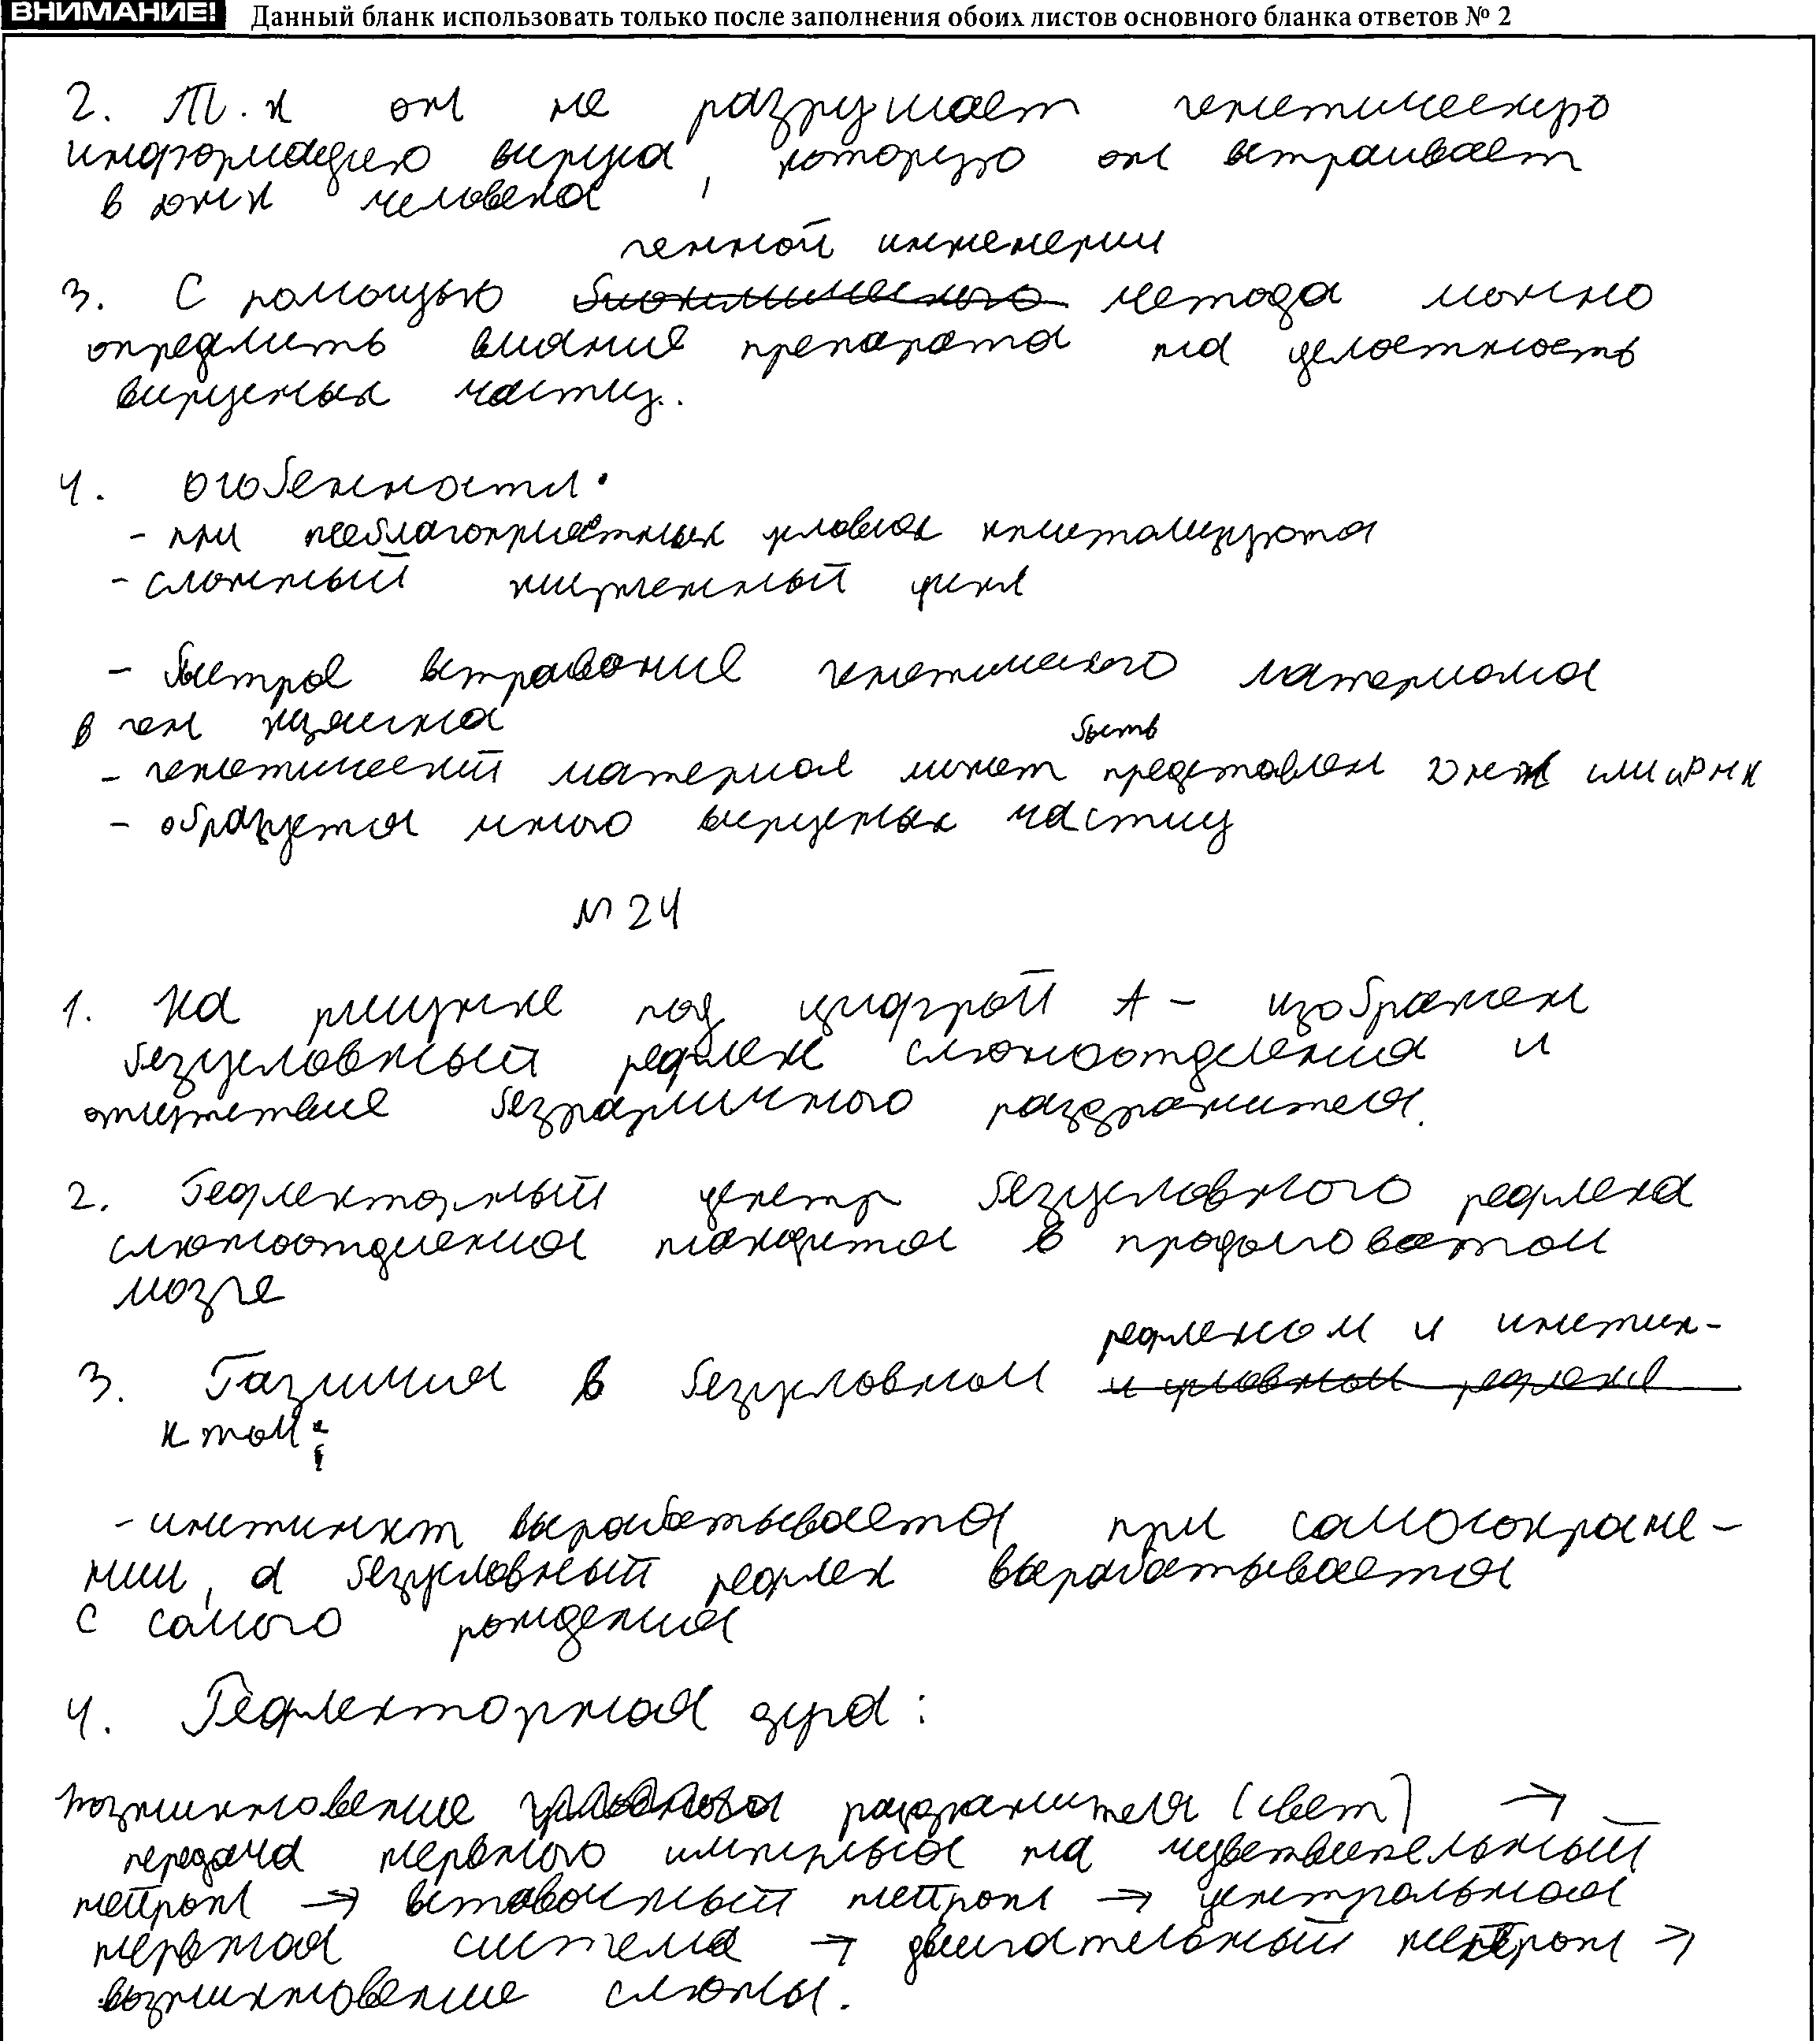 ВНИМАНИЕ! Данный бланк использовать только после заполнения обоих листов основного бланка ответов № 2
2. Т.к он не разрушает генетическую
информацию вируса, которую он встраивает
в днк человека
генной инженерии
3. С помощью биохимического метода можно
определить влияние препарата на целостность
вирусных частиц.
4. особенности:
- при неблагоприятных условиях кристализуются
- сложный жизненный цикл
- быстрое встраование генетического материала
в ген хозяина
быть
- генетический материал может представлен днк или рнк
- образуется много вирусных частиц
№ 24
1. На рисунке под цифрой А - изображен
безусловный рефлекс слюноотделения и
отсутствие безразличного раздражителя.
2. Рефлекторный центр безусловного рефлекса
слюноотделения находится в продолговатом
мозге
рефлексом и инстин-
3. Различия в безусловном и условном рефлексе
ктом:
- инстинкт вырабатывается при самосохране-
нии, а безусловный рефлекс вырабатывается
с самого рождения
4. Рефлекторная дуга:
возникновение условного раздражителя (свет) →
передача нервного импульса на чувствительный
нейрон → вставочный нейрон → центральная
нервная система → двигательный нейрон →
возникновение слюны.